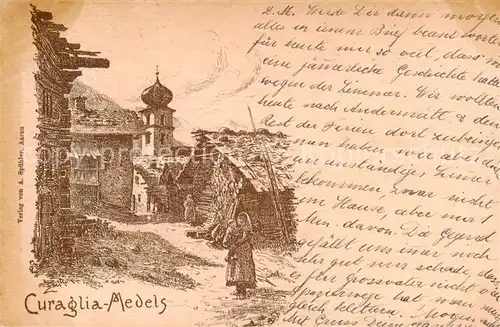 L. M. Werde Dir dann morgen
alles in einem Brief beantworten
für heute nur so viel, dass wir
eine jämmerliche Geschichte hatten
wegen der Zimmer. Wir wollten
heute nach Andermatt, & den
Rest der Ferien dort zubringen
nun haben wir aber doch
ein anständiges Zimmer
bekommen, zwar nicht
im Hause, aber nur
Min. davon. Die Gegend
gefällt uns immer noch
sehr gut nur schade, dass
es für Grossvater nicht
Spaziergänge hat, wenn man
gleich klettern. Morgen
Mit Gruss
Verlag von A. Spühler, Aarau
Curaglia-Medels